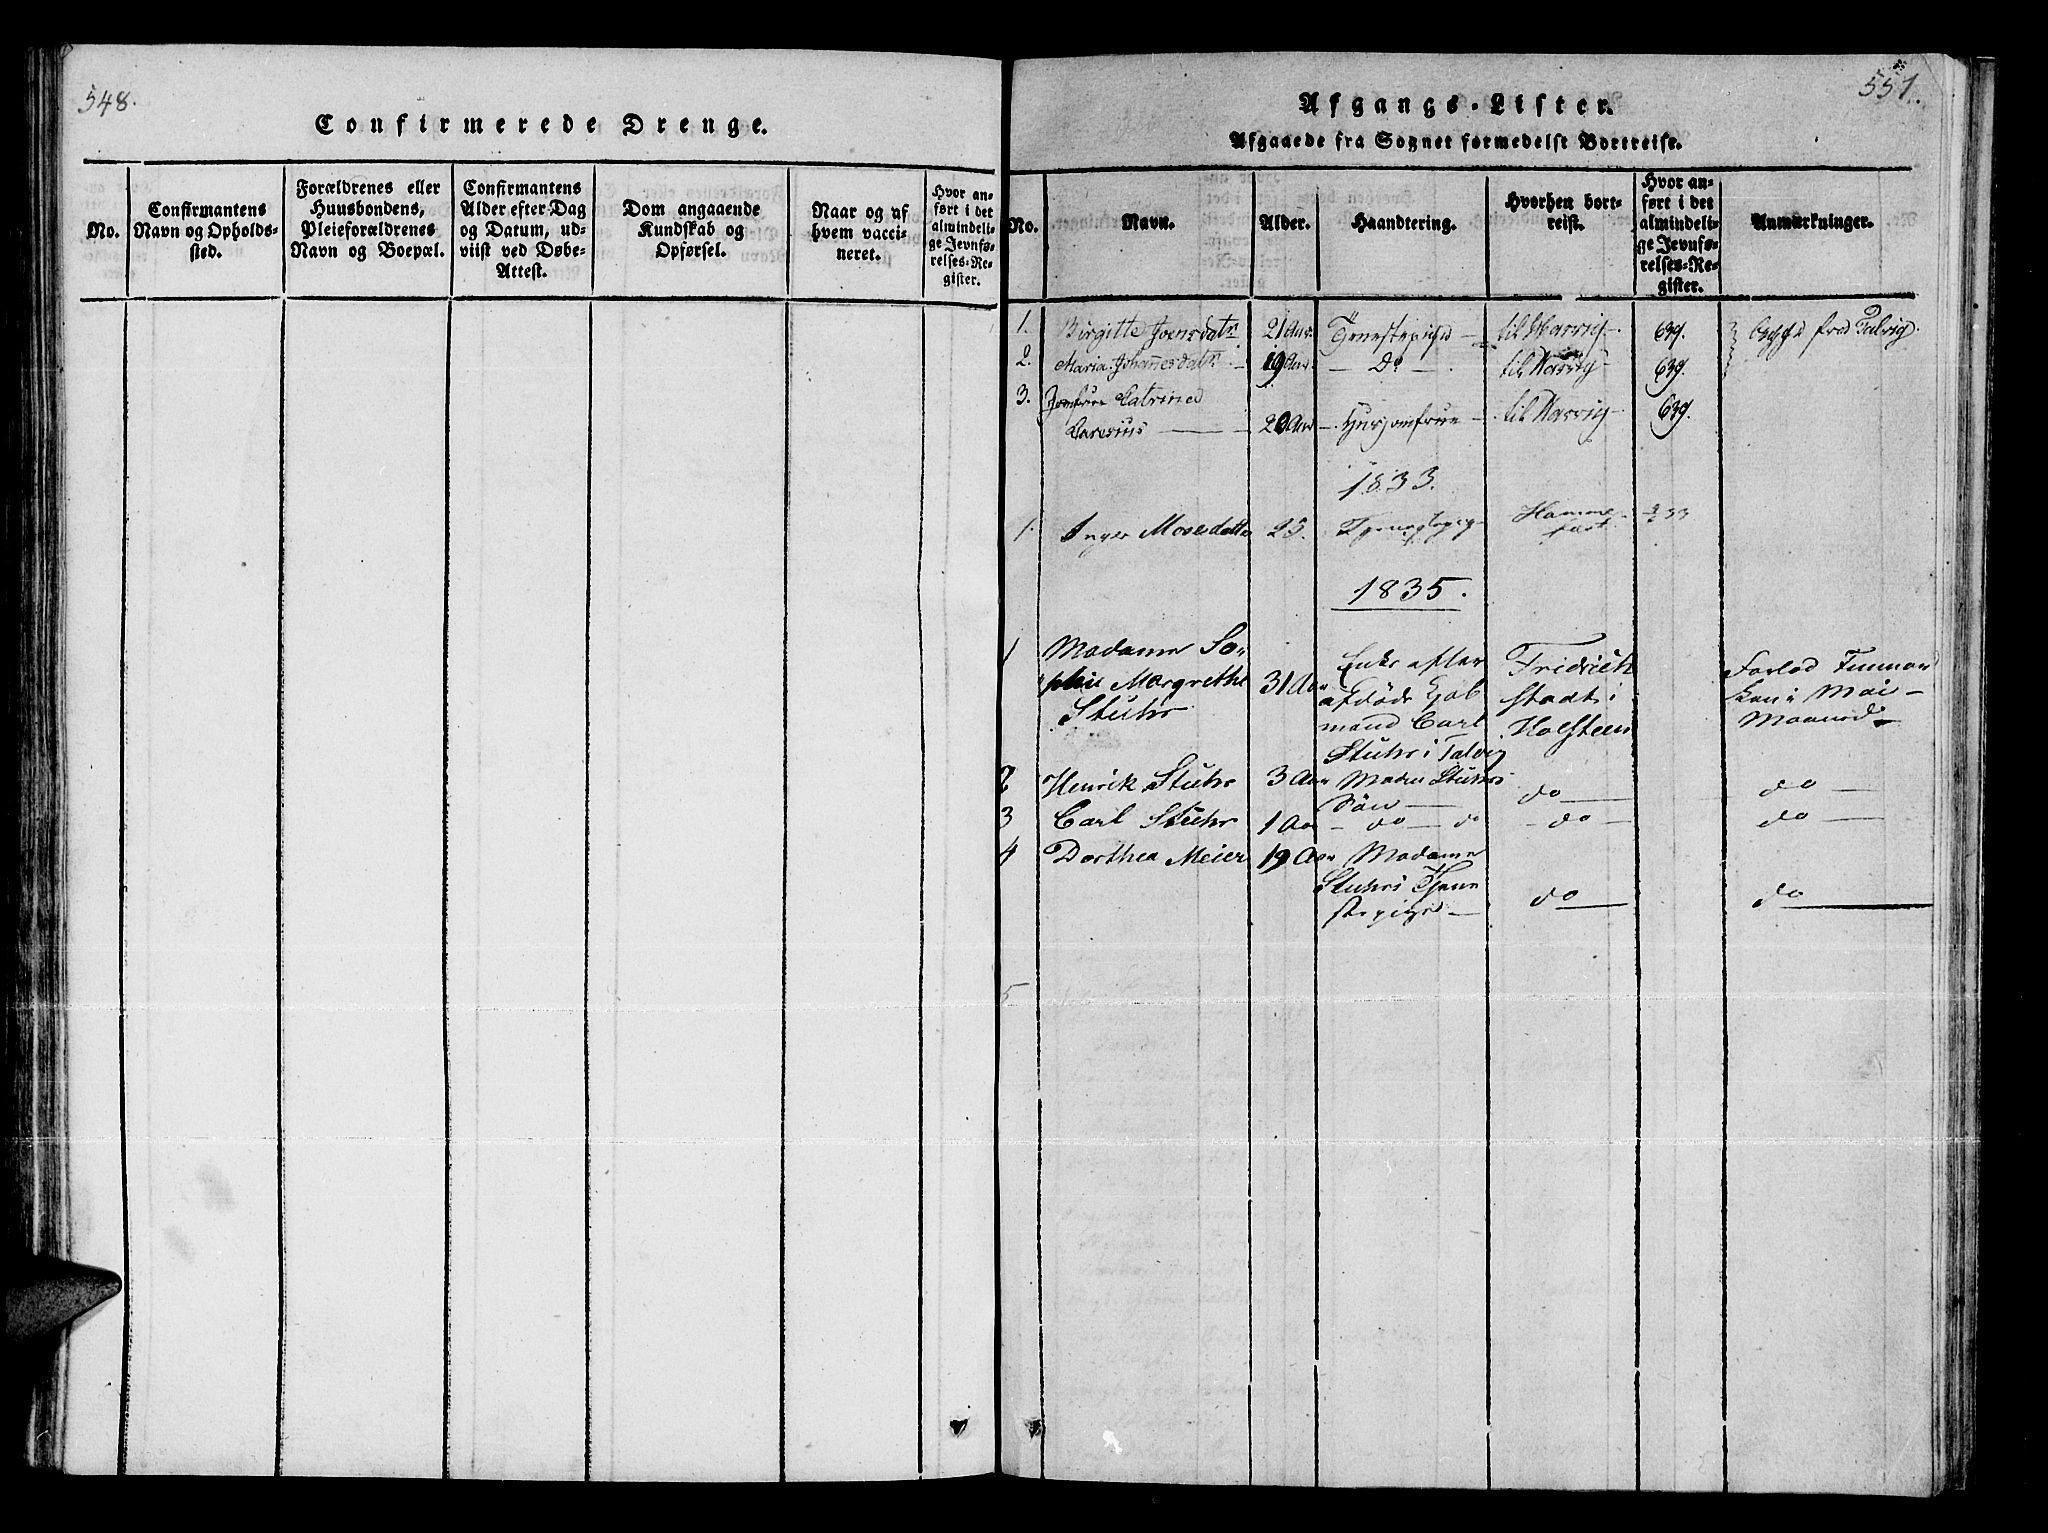 548.
Confirmerede Drenge.
No.
Confirmantens
Navn og Opholds-
sted.
Forældrenes eller
Huusbondens,
Pleieforældrenes
Navn og Boepæl.
Confirmantens
Alder efter Dag
og Datum, ud-
viist ved Døbe-
Attest.
Dom angaaende
Kundskab og
Opførsel.
Naar og af
hvem vacci-
neret.
Hvor an-
ført i det
almindeli-
ge Jevnfø-
relses-Re-
gister.
551.
Afgangs-Lister.
Afgaaede fra Sognet formedelst Bortreise.
No.
Navn.
Alder.
Haandtering.
Hvorhen bort-
reist.
Hvor an-
ført i det
almindeli-
ge Jevnfø-
relses-Re-
gister.
Anmærkninger.
1. Birgitte Joensdatr 21 Aar. Tjenestepige til 639. fra Talvig.
2. Maria Johannesdatr 19 Aar. Do til 639.
3. Jomfrue Catrina
20 Aar Huusjomfrue til 639.
1833.
1. Inger Mosesdatter 23. Hamme-
fæst.
1835.
1 Madame So-
phie Margrethe 31 Aar
Stuhr
Enke efter
afdøde
mand Carl
Stuhr i Talvig
Fridrich
stadt i
Holsteen
Forlod Finmar
ken i Mai
Maaned
2 Henrik Stuhr 3 Aar Madm Stuhrs
Søn do do
3 Carl Stuhr 1 Aar do do do do
4 Dorthea Meier 19 Aar Madame
Stuhrs Tjene
stepige do do
5